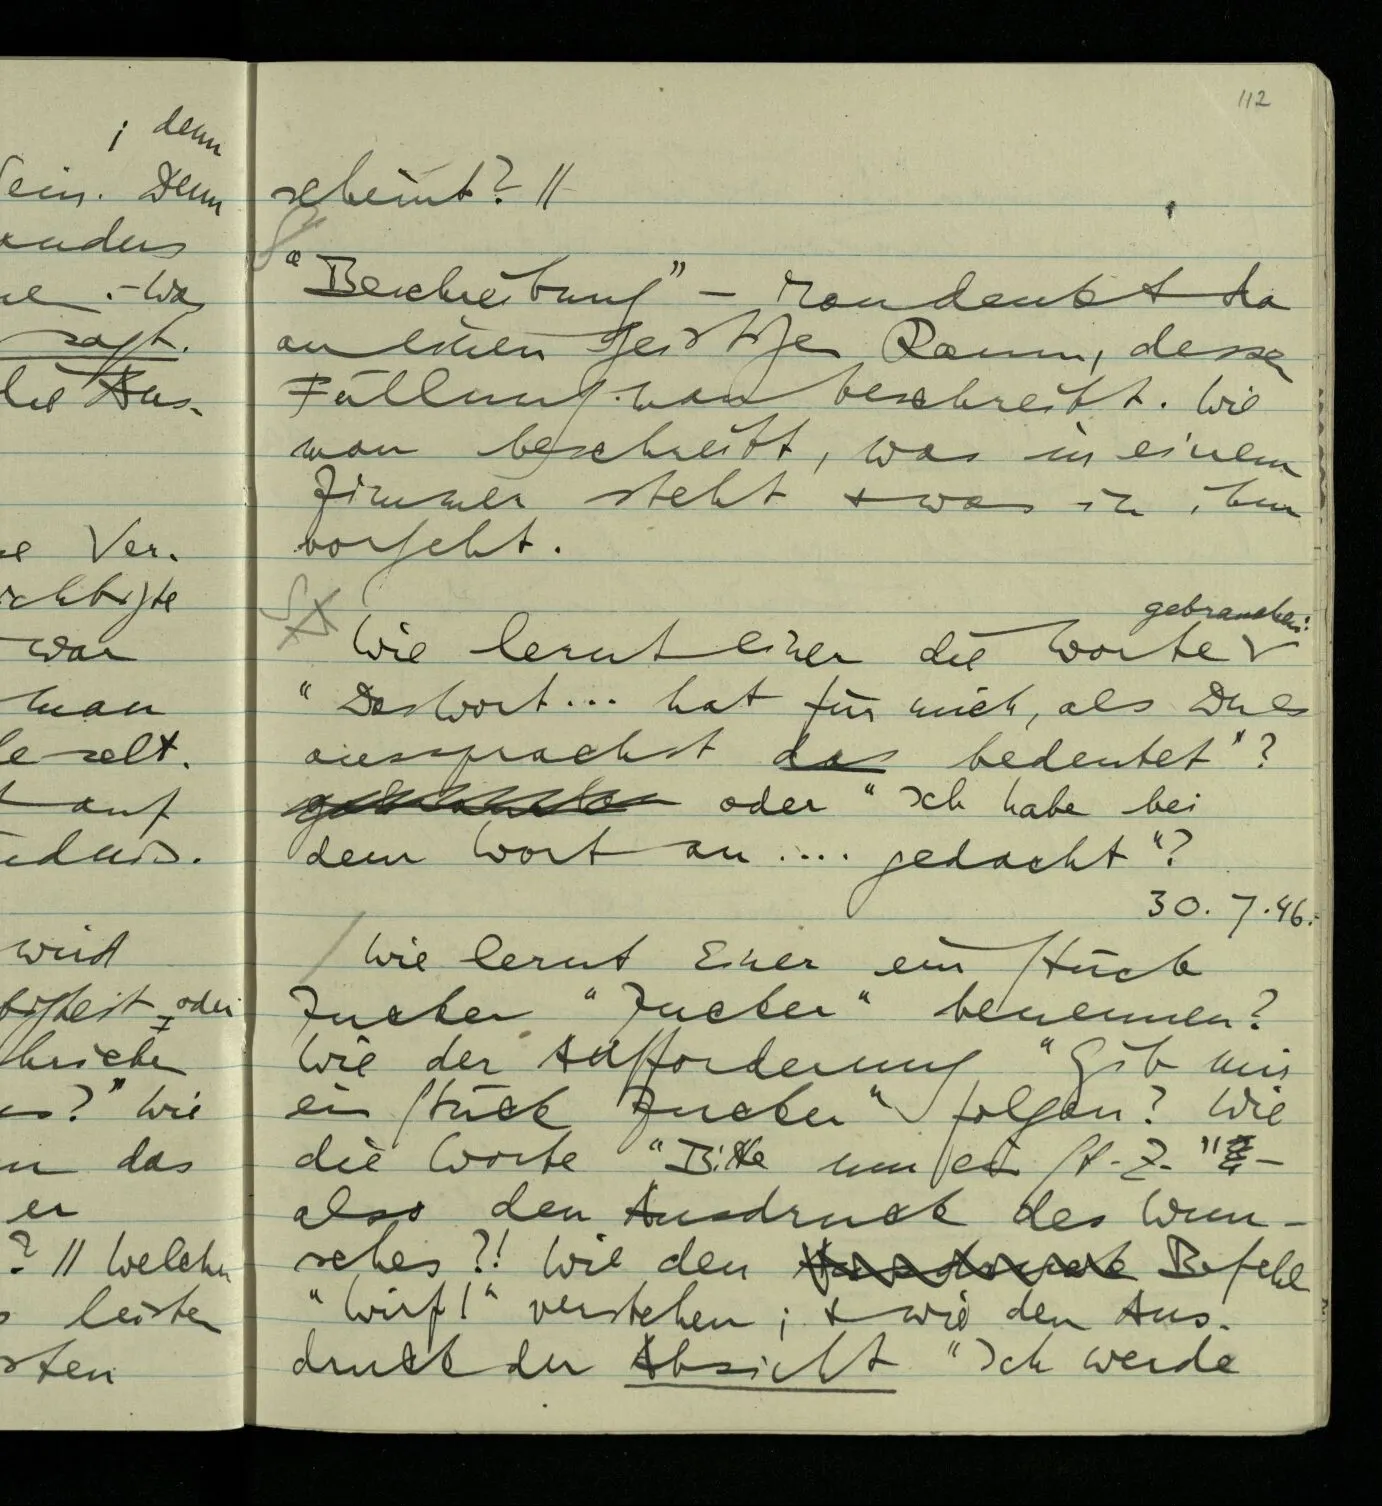 ; denn
sein. Denn
anders
sagt.
die Aus-
Ver-
war
man
auf
wird
oder
es?" Wie
das
er
? // Welchen
leisten
112
scheint? //
"Beschreibung" – Man denkt da
an einen Raum, dessen
Füllung man beschreibt. Wie
man beschreibt, was in einem
Zimmer steht + was in ihm
vorgeht.
gebrauchen:
Wie lernt einer die Worte
"Das Wort ... hat für mich, als Du es
aussprachst das bedeutet"?
oder "Ich habe bei
dem Wort an .... gedacht"?
30.7.46.
Wie lernt Einer ein Stück
Zucker "Zucker" benennen?
Wie der Aufforderung "Gib mir
ein Stück Zucker" folgen? Wie
die Worte "Bitte um ein St. Z." –
also den Ausdruck des Wun-
sches?! Wie den Befehl
"Wirf!" verstehen; + wie den Aus-
druck der Absicht "Ich werde